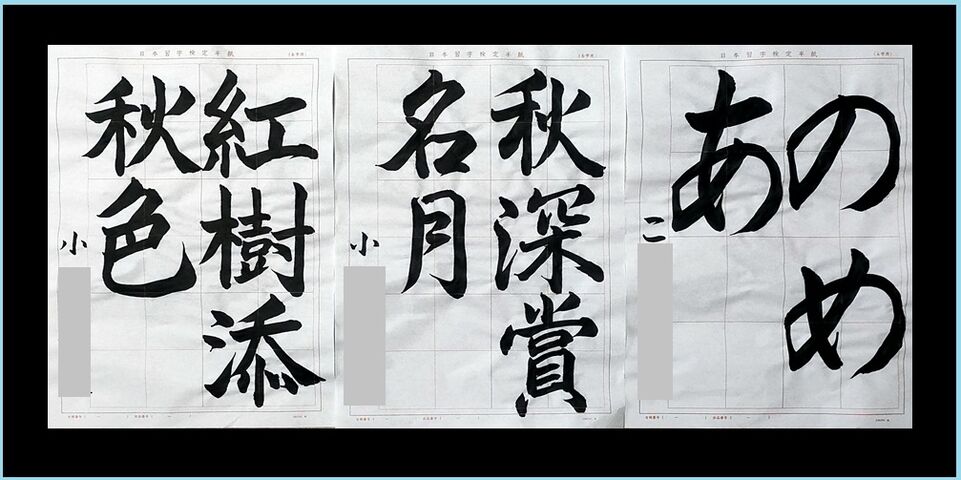 日本習字検定半紙
のめ
あ
二
日本習字検定半紙
秋深賞
名月
小
日本習字検定半紙
紅樹添
秋色
小